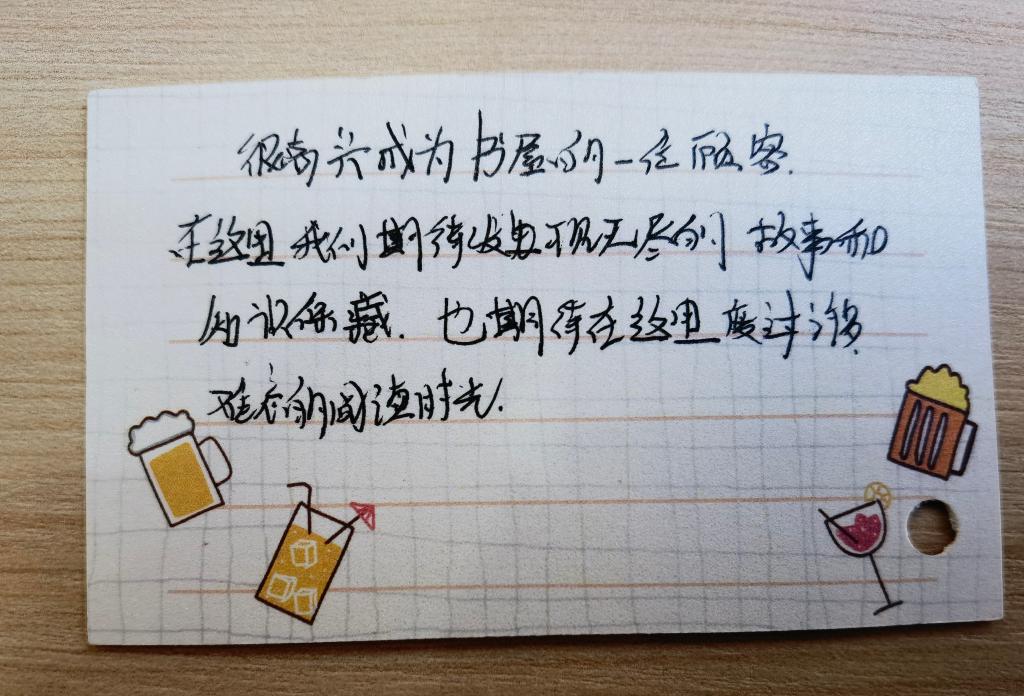 很高兴成为书屋的一位顾客.
在这里我们期待发现无尽的故事和
知识保藏. 也期待在这里度过
难忘的阅读时光.